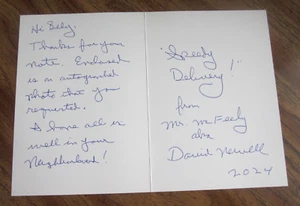 Hi Billy.
Thanks for your
note. Enclosed
is an autographed
photo that you
requested.
I hope all is
well in your
Neighborhood!
"Speedy
Delivery!"
from
Mr McFeely
aka
David Newell
2024